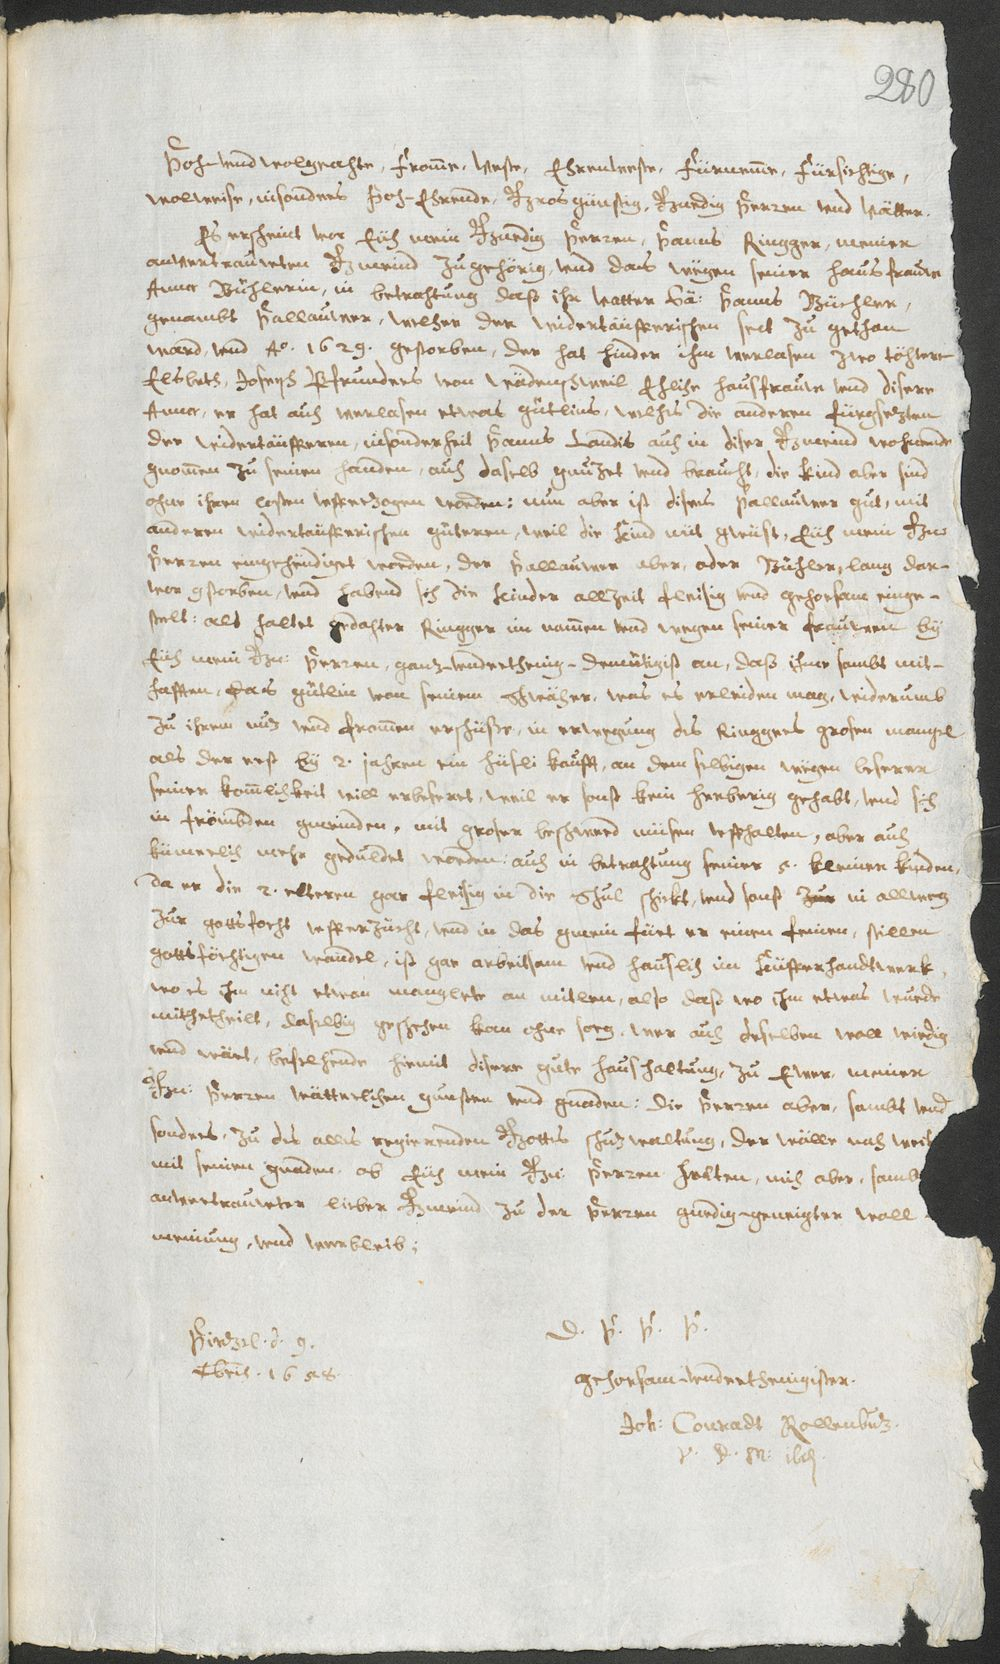 280
Hoh- vnd wolgeachte, Fromme, Veste, Ehrenveste, Fürnemme, Fürsichtige,
wolweise, insonders Hoh-Ehrende, Grosgünstig, Gnedig Herren vnd Vätter.
Es erscheint vor Eüch mein Gnedig Herren, Hanns Ringger, meiner
anvertrauweten Gmeind zugehörig, vnd das wegen seiner hausfrauw
Anna Bühlerin, in betrachtung daß ihr vatter sä: Hanns Büehler,
genambt Hallauwer, welcher der widertäufferischen sect zu gethan
ward, vnd Ao. 1629. gestorben, der hat hinder ihm verlasen zwo töhter
Elsbeth, Joseph Pfrunders von Wädenschweil Ehliche hausfrauw vnd disere
Anna, er hat auch verlasen etwas gütlins, welches die anderen fürgsezten
der widertäufferen, insonderheit Hanns Landis auch in diser Gmeind wohnende
gnommen zu seinen handen, auch daselb gnuzet vnd braucht, die kind aber sind
ohne ihren costen vfferzogen worden: nun aber ist dises Hallauwer gut, mit
anderen widertäufferischen güteren, weil die kind nüt gwüst, Eüch mein Gn:
Herren eingehendiget worden, der Hallauwer aber, oder Bühler, lang dar-
vor gstorben, vnd habend sich die kinder allzeit fleisig vnd gehorsam einge-
stelt: als haltet gedachter Ringger im nammen vnd wegen seiner frauwen by
Eüch mein Gn: Herren, ganz-vnderthenig-demütigist an, daß ihme sambt mit-
hafften, das gütlin von seinem Schwäher, was es erleiden mag, widerumb
zu ihrem nuz vnd frommen erschüsse, in erwegung des Ringgers grosen mangel
als der erst by 2. jahren ein hüsli kaufft, an dem selbigen wegen beserer
seiner komlichkeit vill erbeseret, weil er sonst kein herberig gehabt, vnd sich
in frömbden gmeinden, mit groser beschwerd müsen vffhalten, aber auch
kümerlich mehr geduldet worden: auch in betrachtung seiner 5. kleinen kinden,
da er die 2. elteren gar fleisig in die Schul schickt, vnd sonst zur in allweg
zur gottsforcht vfferzücht, vnd in das gmein fürt er einen feinen, stillen
gottsförchtigen wandel, ist gar arbeitsam vnd hauslich im Küfferhandtwerk,
wo es ihm nicht etwan manglete an mitlen, also daß wo ihm etwas wurde
mithetheilt, daselbig geschehen kan ohne sorg, wer auch deselben woll wirdig
vnd wärt, befelhende hiemit disere gute haushaltung, zu Ewer, meiner
Gn: Herren vätterlichen gunsten vnd gnaden: die Herren aber, sambt vnd
sonders, zu des alles regierenden Gottes schuzwaltung, der wälle nach weit
mit seinen gnaden ob Eüch mein Gn: Herren halten, mich aber, samb
anvertrauweter lieber Gmeind zu der Herren gnedig-geneigter woll-
meinung, vnd verbleib;
Hirzel. d. 9.
1658.
D. H. H. H.
gehorsam-vnderthenigister.
Joh: Conradt Rollenbuz.
V. D. M: ibid.